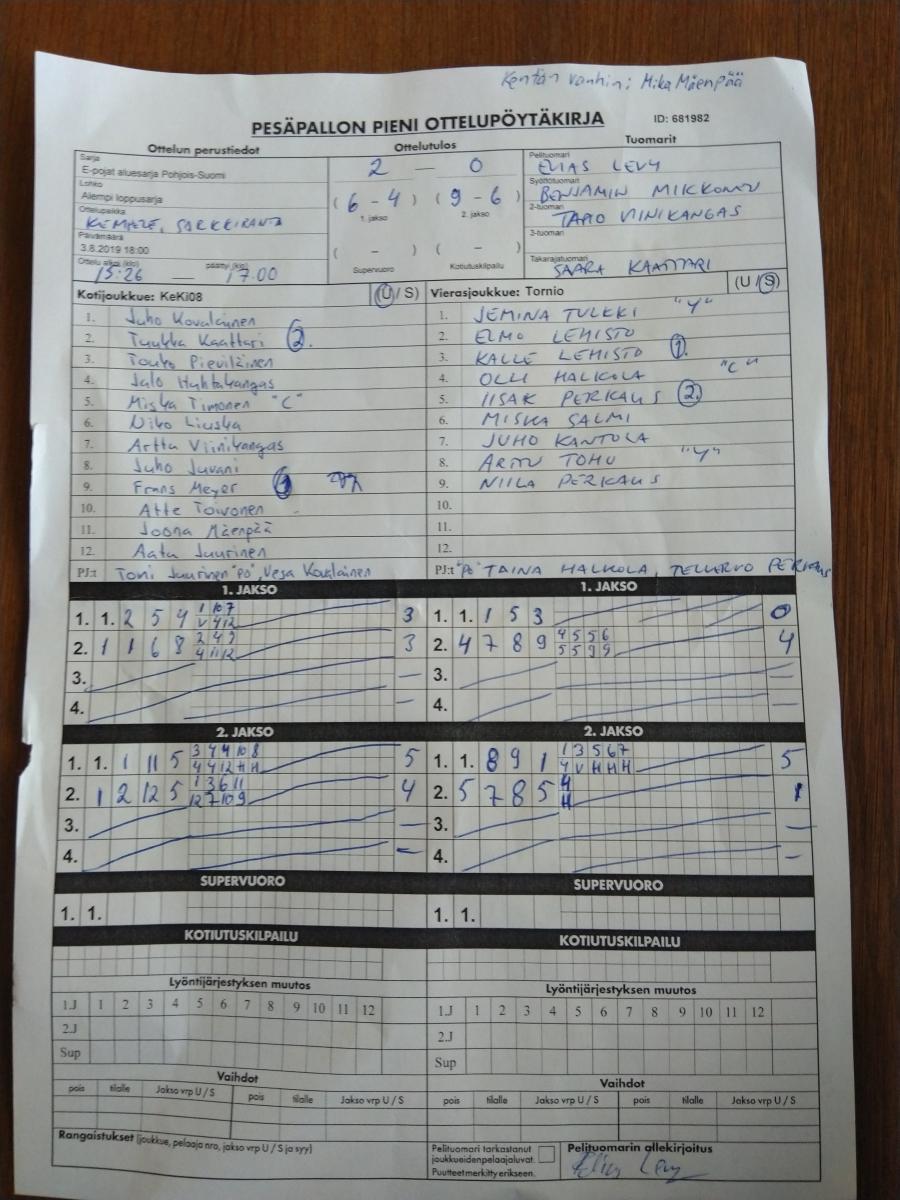 Kentän vanhin: Mika Mäenpää
PESÄPALLON PIENI OTTELUPÖYTÄKIRJA ID: 681982
Ottelun perustiedot Ottelutulos Tuomarit
Sarja
E-pojat aluesarja Pohjois-Suomi
Lohko
Alempi loppusarja
Ottelupaikka
KEMPELE, SARKKIRANTA
Päivämäärä
3.8.2019 18:00
Ottelu alkoi (klo) päättyi (klo)
15:26 — 17.00
2 — 0
( 6 - 4 ) ( 9 - 6 )
1. jakso 2. jakso
( - ) ( - )
Supervuoro Kotiutuskilpailu
Pelituomari
ELIAS LEVY
Syöttötuomari
BENJAMIN MIKKONEN
2-tuomari
TAPIO VINIKANGAS
3-tuomari
Takarajatuomari
SAARA KAATTARI
Kotijoukkue: KeKi08 (U / S)
1. Juho Kovalainen
2. Tuukka Kaattari 2.
3. Touko Pieviläinen
4. Jalo Huhtakangas
5. Miska Timonen "C"
6. Niko Liuska
7. Arttu Viinikangas
8. Juho Juvani
9. Frans Meyer
10. Atte Toivonen
11. Joona Mäenpää
12. Aatu Juurinen
PJ:t Toni Juurinen "PJ", Vesa Kovalainen
Vierasjoukkue: Tornio (U / S)
1. JEMINA TULKKI "Y"
2. ELMO LEHISTO
3. KALLE LEHISTO 1.
4. OLLI HALKOLA "C"
5. IISAK PERKAUS 2.
6. MISKA SALMI
7. JUHO KANTOLA
8. ARTTU TOHU "Y"
9. NIILA PERKAUS
10.
11.
12.
PJ:t TAINA HALKOLA, TELLERVO PERKAUS
1. JAKSO
1. 1. 2 5 4 1 10 7 3
V 4 12
2. 1 1 6 8 2 4 9 3
4 11 12
3. —
4. —
1. JAKSO
1. 1. 1 5 3 0
2. 4 7 8 9 4 5 5 6 4
5 5 9 9
3. —
4. —
2. JAKSO
1. 1. 1 11 5 3 4 4 10 8 5
4 4 12 H H
2. 1 2 12 5 1 3 6 11 4
12 7 10 9
3. —
4. —
2. JAKSO
1. 1. 8 9 1 1 3 5 6 7 5
4 V H H H
2. 5 7 8 5 4 1
H
3. —
4. —
SUPERVUORO
1. 1.
SUPERVUORO
1. 1.
KOTIUTUSKILPAILU
KOTIUTUSKILPAILU
Lyöntijärjestyksen muutos
1.J 1 2 3 4 5 6 7 8 9 10 11 12
2.J
Sup
Lyöntijärjestyksen muutos
1.J 1 2 3 4 5 6 7 8 9 10 11 12
2.J
Sup
Vaihdot
pois tilalle Jakso vrp U / S pois tilalle Jakso vrp U / S
Vaihdot
pois tilalle Jakso vrp U / S pois tilalle Jakso vrp U / S
Rangaistukset (joukkue, pelaaja nro, jakso vrp U / S ja syy)
Pelituomari tarkastanut
joukkueidenpelaajaluvat.
Puutteet merkitty erikseen.
Pelituomarin allekirjoitus
Elias Levy